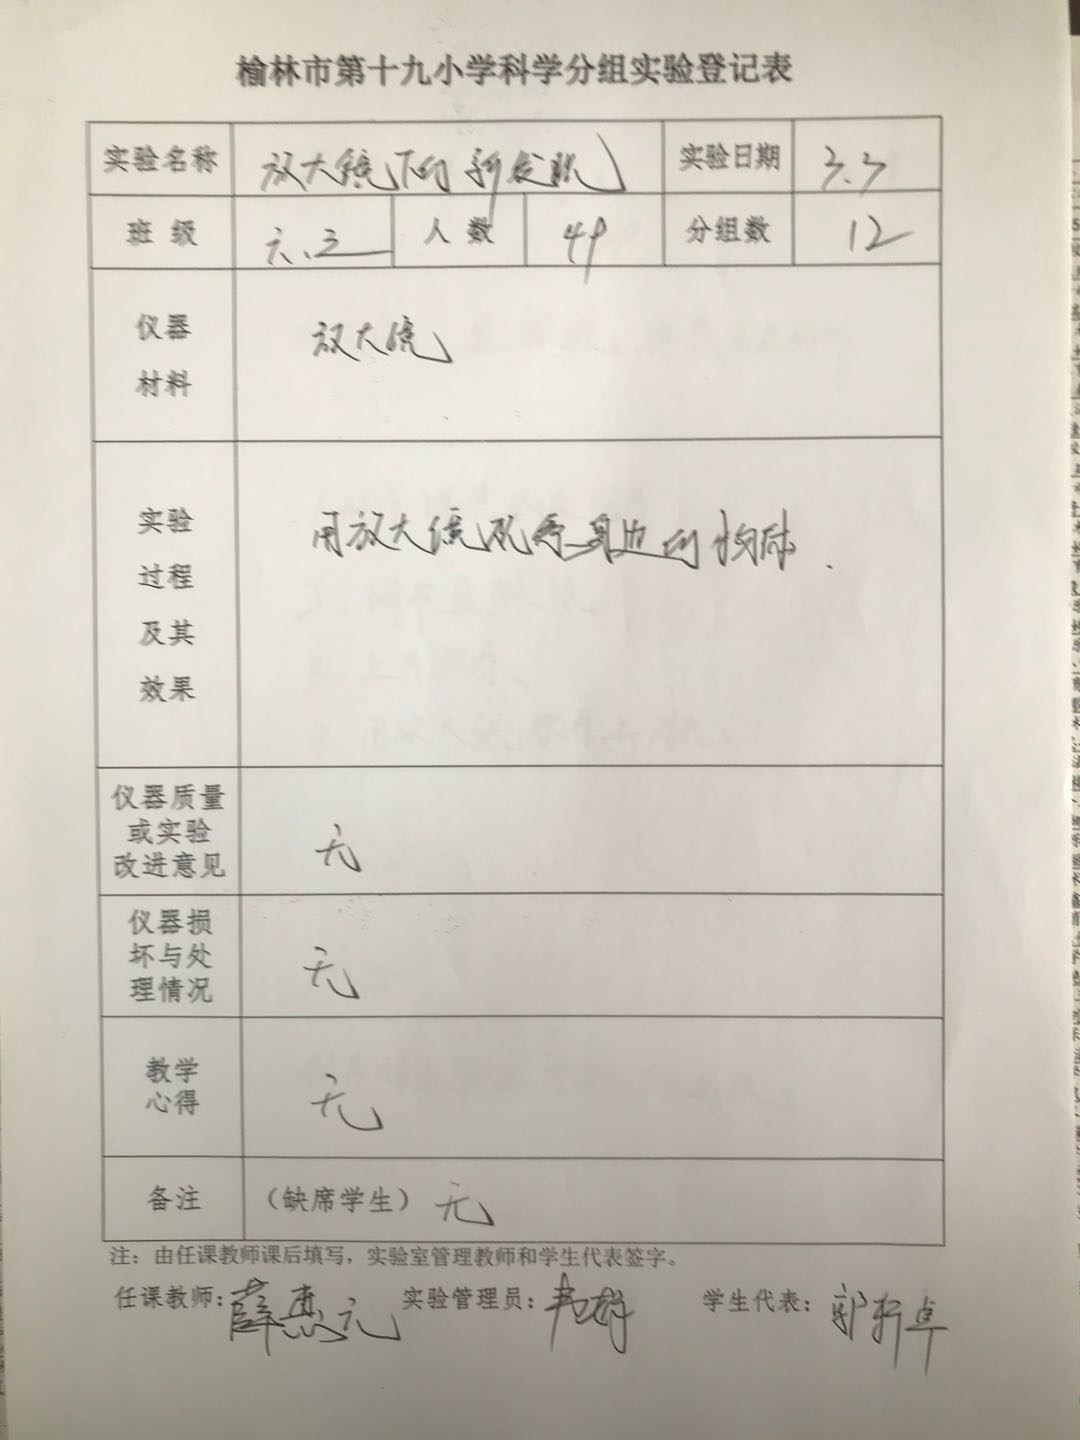 榆林市第十九小学科学分组实验登记表
实验名称 放大镜下的新发现 实验日期 3.3
班级 六.三 人数 49 分组数 12
仪器
材料
放大镜
实验
过程
及其
效果
用放大镜观察身边的物体.
仪器质量
或实验
改进意见
无
仪器损
坏与处
理情况
无
教学
心得
无
备注 （缺席学生） 无
注：由任课教师课后填写，实验室管理教师和学生代表签字。
任课教师：薛惠元 实验管理员： 学生代表：郭